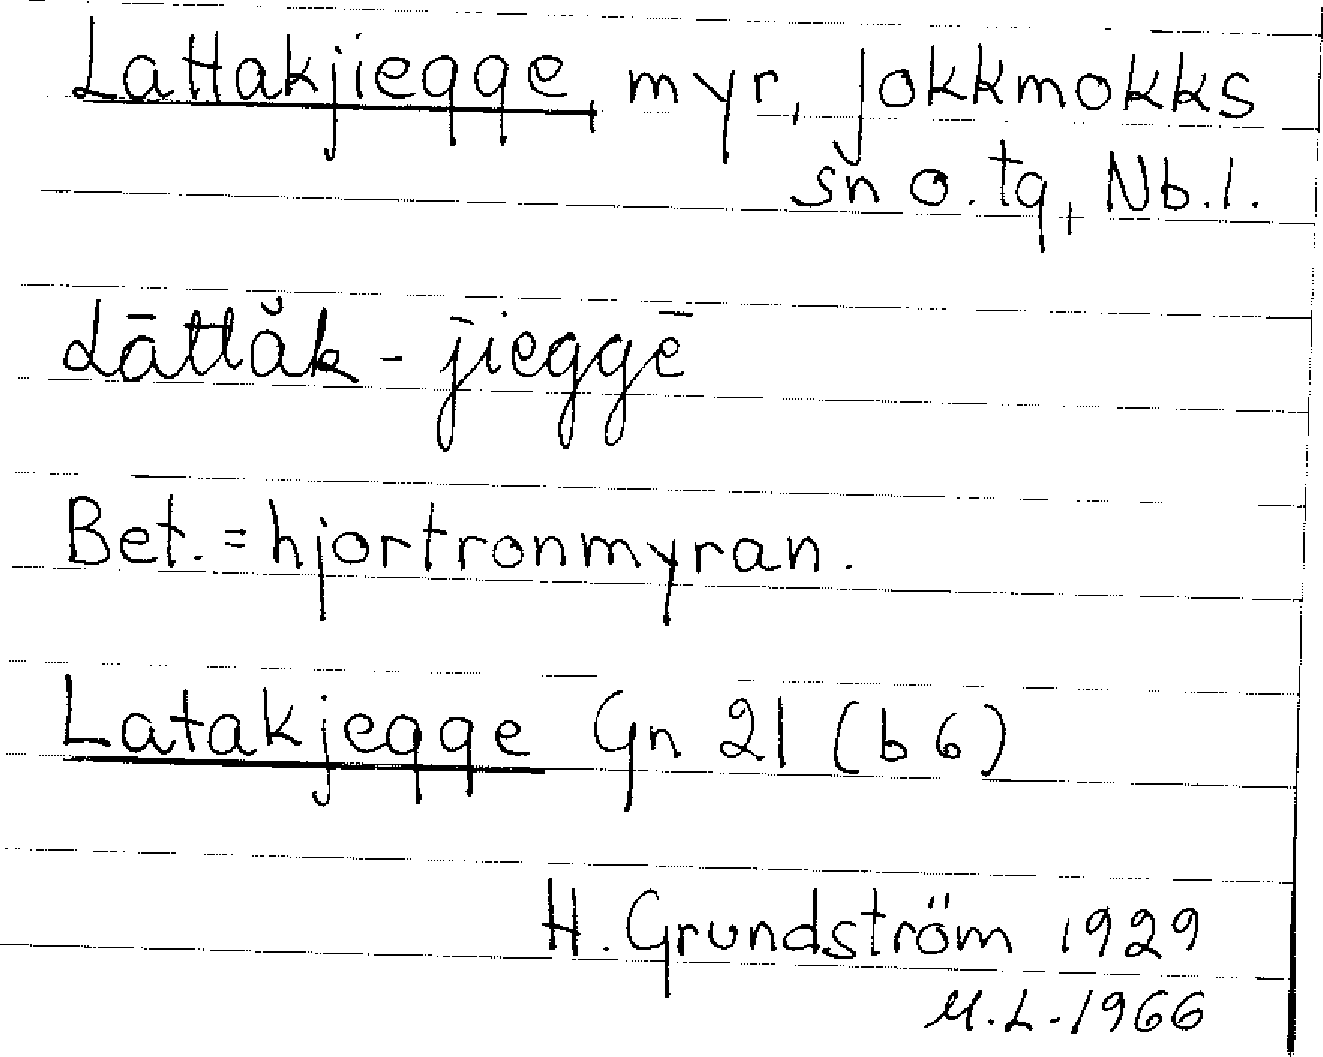 Lattakjiegge, myr, Jokkmokks
sn o. tg, Nb.l.
Lāttăk - jieggē
Bet. = hjortronmyran.
Latakjegge Gn 21 (b 6)
H. Grundström 1929
M.L. 1966